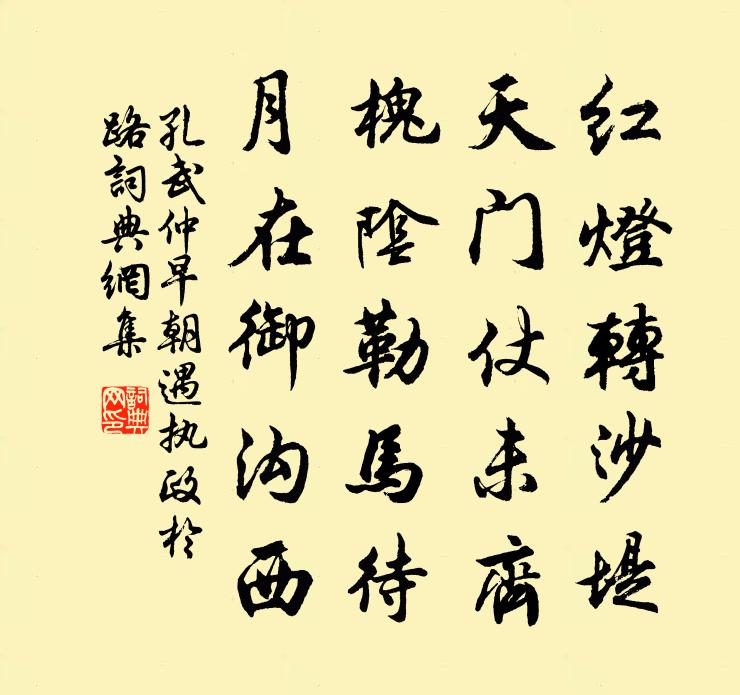 红燈轉沙堤
天门仗未齊
槐陰勒馬待
月在御沟西
孔武仲早朝遇执政於
路詞典網集
詞典网印